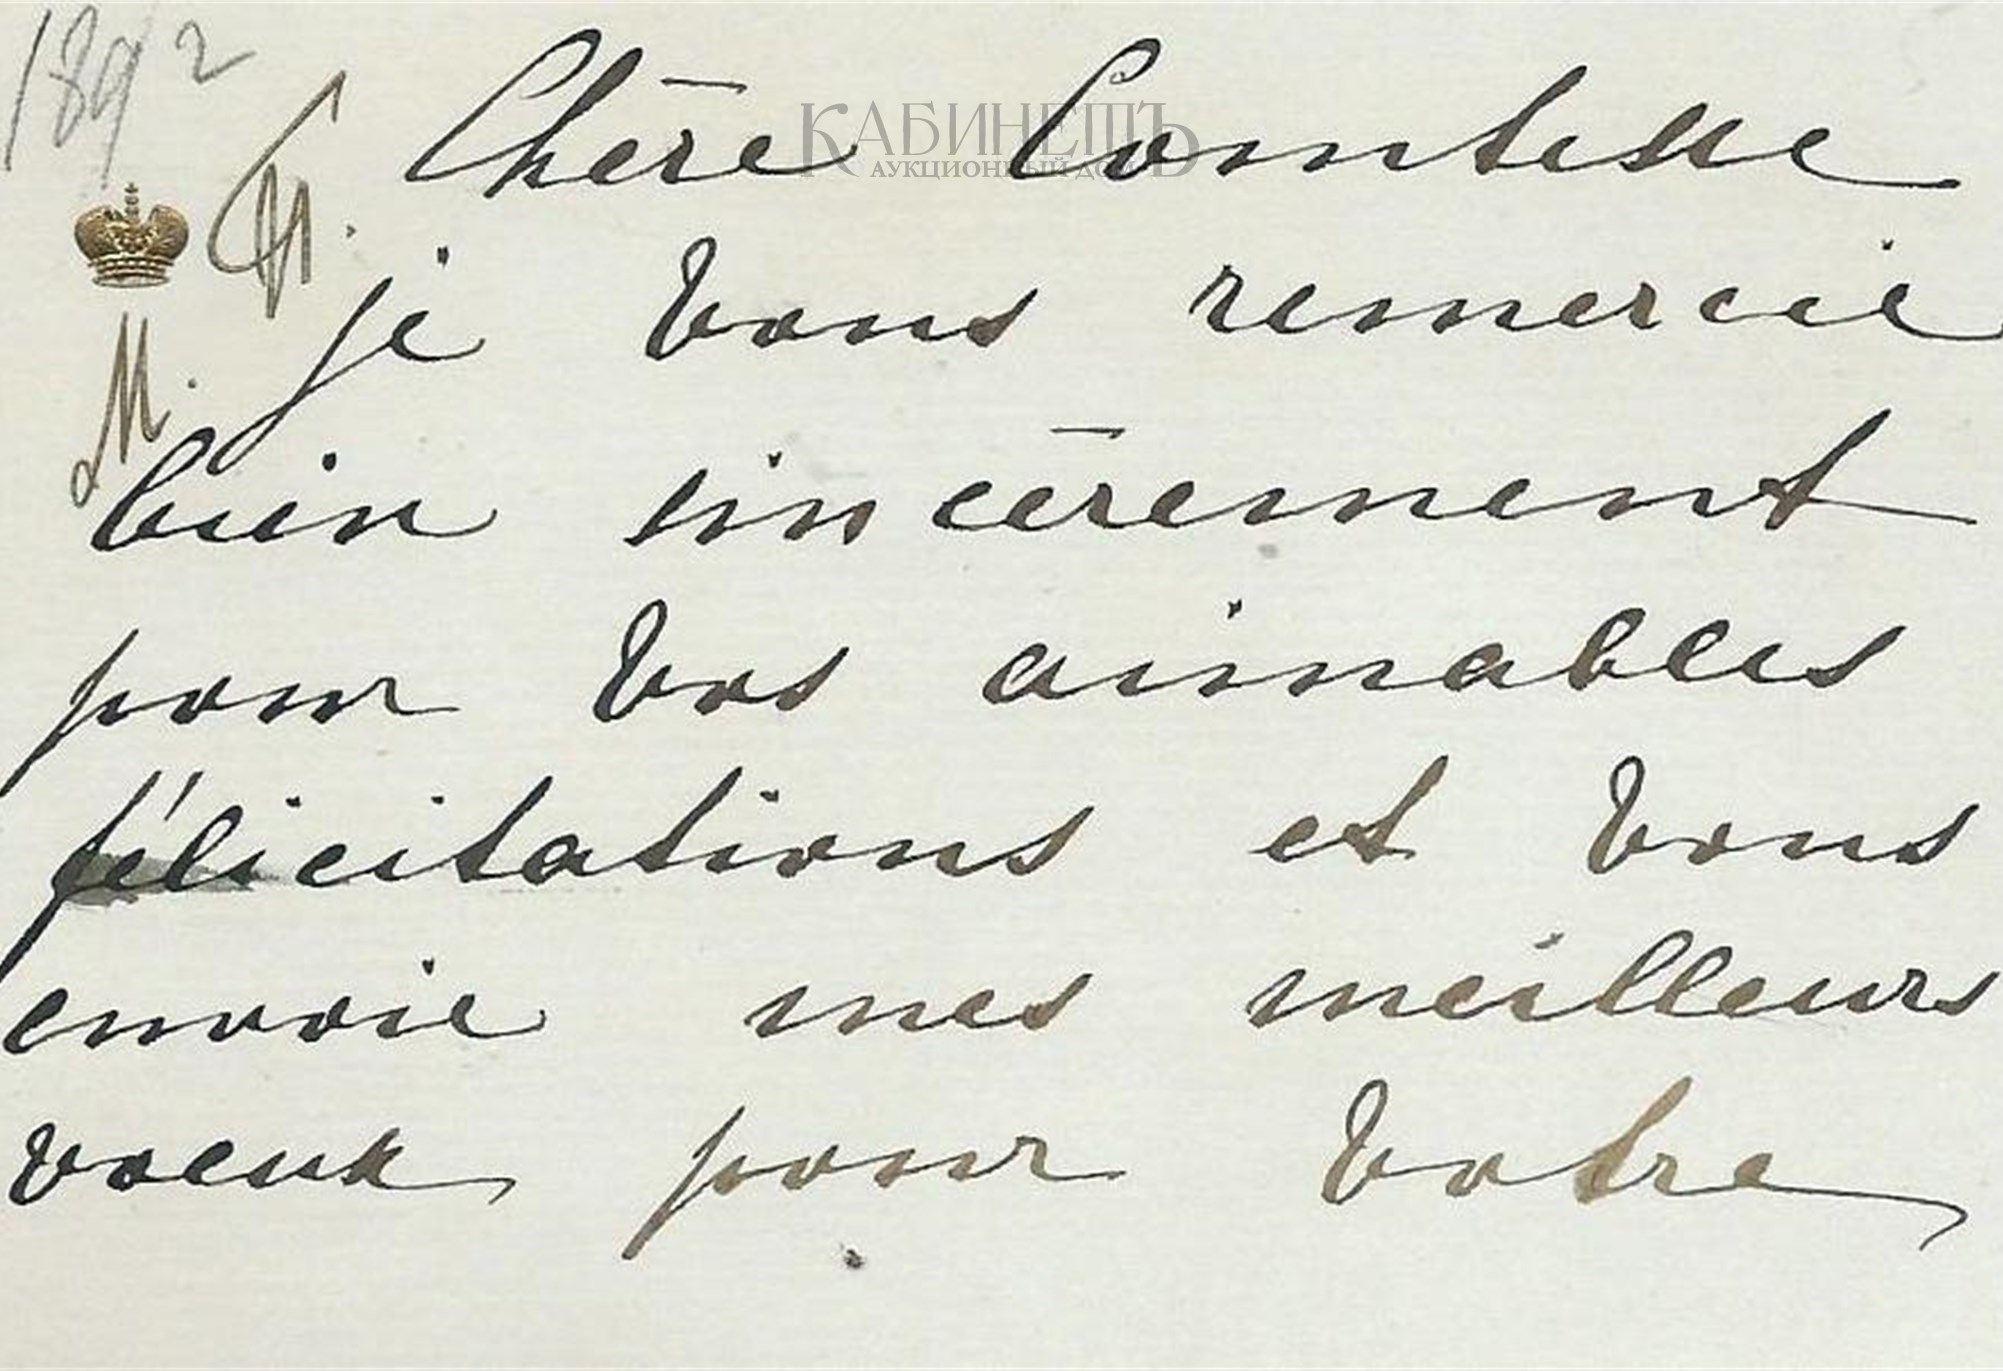 1892
КАБИНЕТЪ
АУКЦИОННЫЙ ДОМ
Chère Comtesse
M.
je vous remercie
bien sincèrement
pour vos aimables
félicitations et vous
envoie mes meilleurs
voeux pour votre